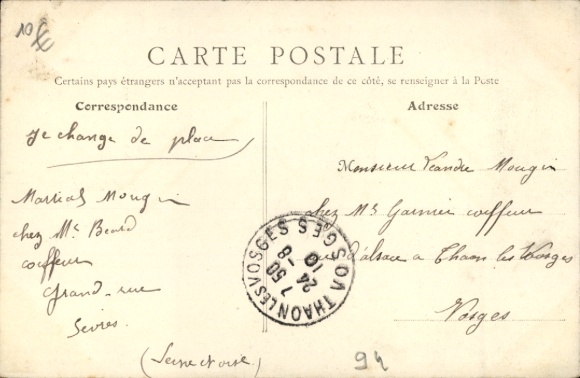 10 f
CARTE POSTALE
Certains pays étrangers n'acceptant pas la correspondance de ce côté, se renseigner à la Poste
Correspondance
Je change de place
Martial Mougin
chez Mr Beard
coiffeur
Grand-rue
Sèvres.
(Seine et oise)
Adresse
Monsieur Leandre Mougin
chez Mr Garnier coiffeur
d'alsace a Thaon les Vosges
Vosges
THAON LES VOSGES
VOSGES
7 50
24 - 8
10
94